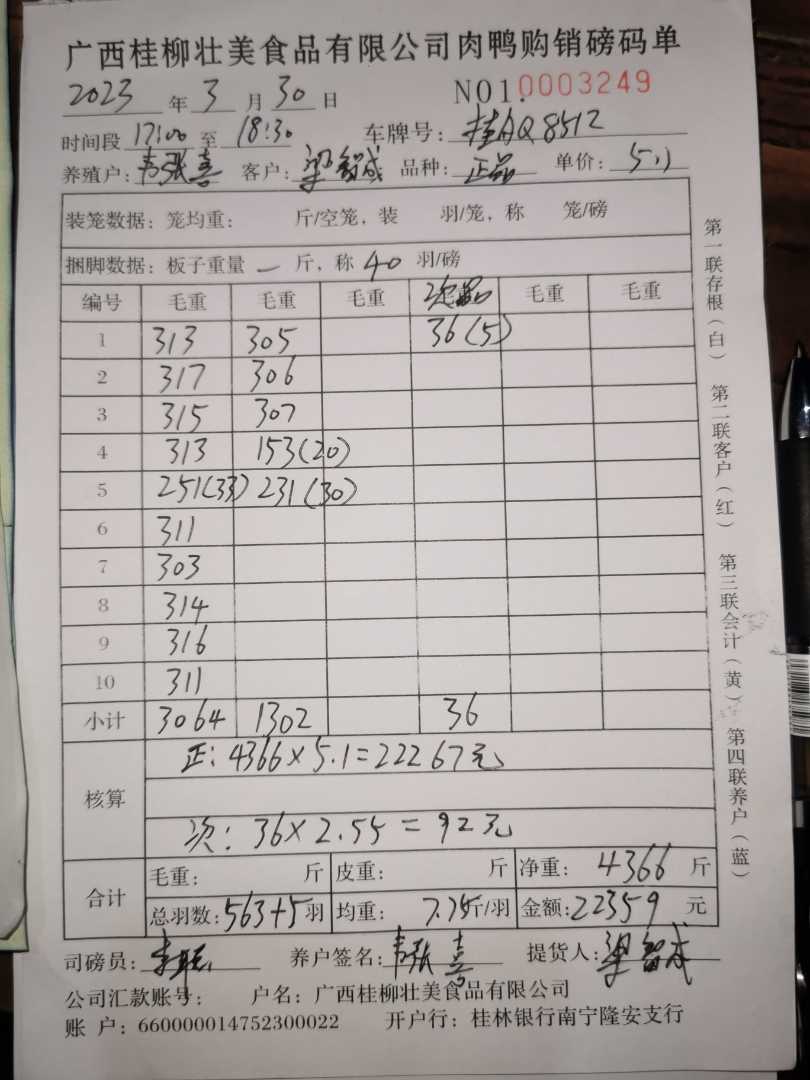 广西桂柳壮美食品有限公司肉鸭购销磅码单
2023 年 3 月 30 日 NO1.0003249
时间段 17:00 至 18:30 车牌号: 桂AQ8512
养殖户: 韦张喜 客户: 梁智成 品种: 正品 单价: 5.1
装笼数据: 笼均重: 斤/空笼, 装 羽/笼, 称 笼/磅
捆脚数据: 板子重量 一 斤, 称 40 羽/磅
编号 毛重 毛重 毛重 次品 毛重 毛重
1 313 305 36(5)
2 317 306
3 315 307
4 313 153(20)
5 251(33) 231(30)
6 311
7 303
8 314
9 316
10 311
小计 3064 1302 36
核算 正: 4366×5.1=22267元
次: 36×2.55=92元
合计 毛重: 斤 皮重: 斤 净重: 4366 斤
总羽数: 563+5 羽 均重: 7.75斤/羽 金额: 22359 元
司磅员: 养户签名: 韦张喜 提货人: 梁智成
公司汇款账号: 户名: 广西桂柳壮美食品有限公司
账 户: 660000014752300022 开户行: 桂林银行南宁隆安支行
第一联存根(白) 第二联客户(红) 第三联会计(黄) 第四联养户(蓝)